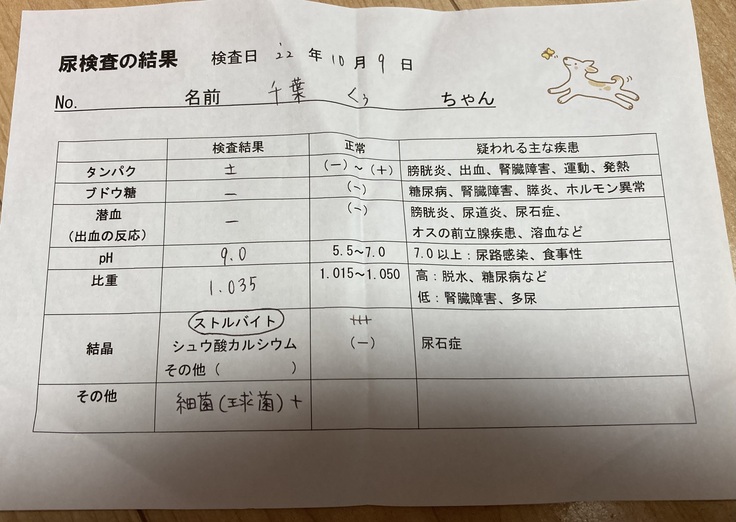 尿検査の結果 検査日 '22年10月9日
No. 名前 千葉 くぅ ちゃん
検査結果 正常 疑われる主な疾患
タンパク ± (−)～(+) 膀胱炎、出血、腎臓障害、運動、発熱
ブドウ糖 − (-) 糖尿病、腎臓障害、膵炎、ホルモン異常
潜血 − (-) 膀胱炎、尿道炎、尿石症、
(出血の反応) オスの前立腺疾患、溶血など
pH 9.0 5.5～7.0 7.0以上：尿路感染、食事性
比重 1.035 1.015～1.050 高：脱水、糖尿病など
低：腎臓障害、多尿
ストルバイト +++
結晶 シュウ酸カルシウム (−) 尿石症
その他（ ）
その他 細菌(球菌)+